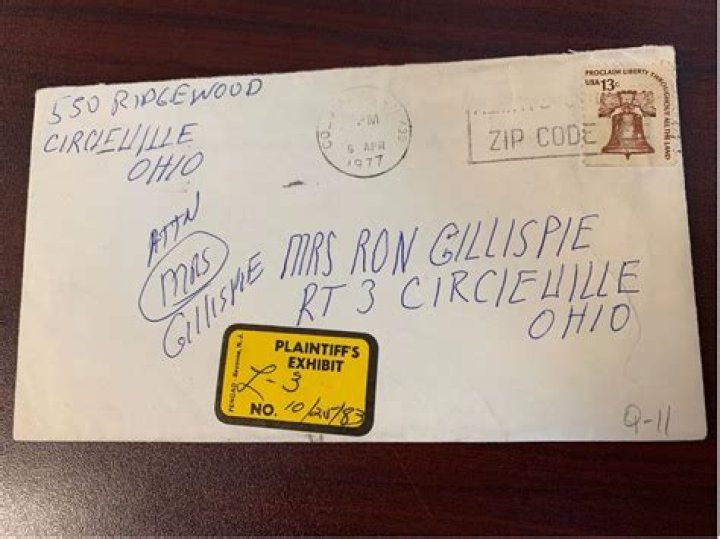 550 RIDGEWOOD
CIRCIEUILLE
OHIO
PM
6 APR
1977
ZIP CODE
PROCLAIM LIBERTY THROUGHOUT ALL THE LAND
USA 13c
ATTN
MRS
GILLISPIE
MRS RON GILLISPIE
RT 3 CIRCIEUILLE
OHIO
PLAINTIFF'S
EXHIBIT
L-3
NO. 10/25/83
PENGAD-Bayonne, N.J.
Q-11